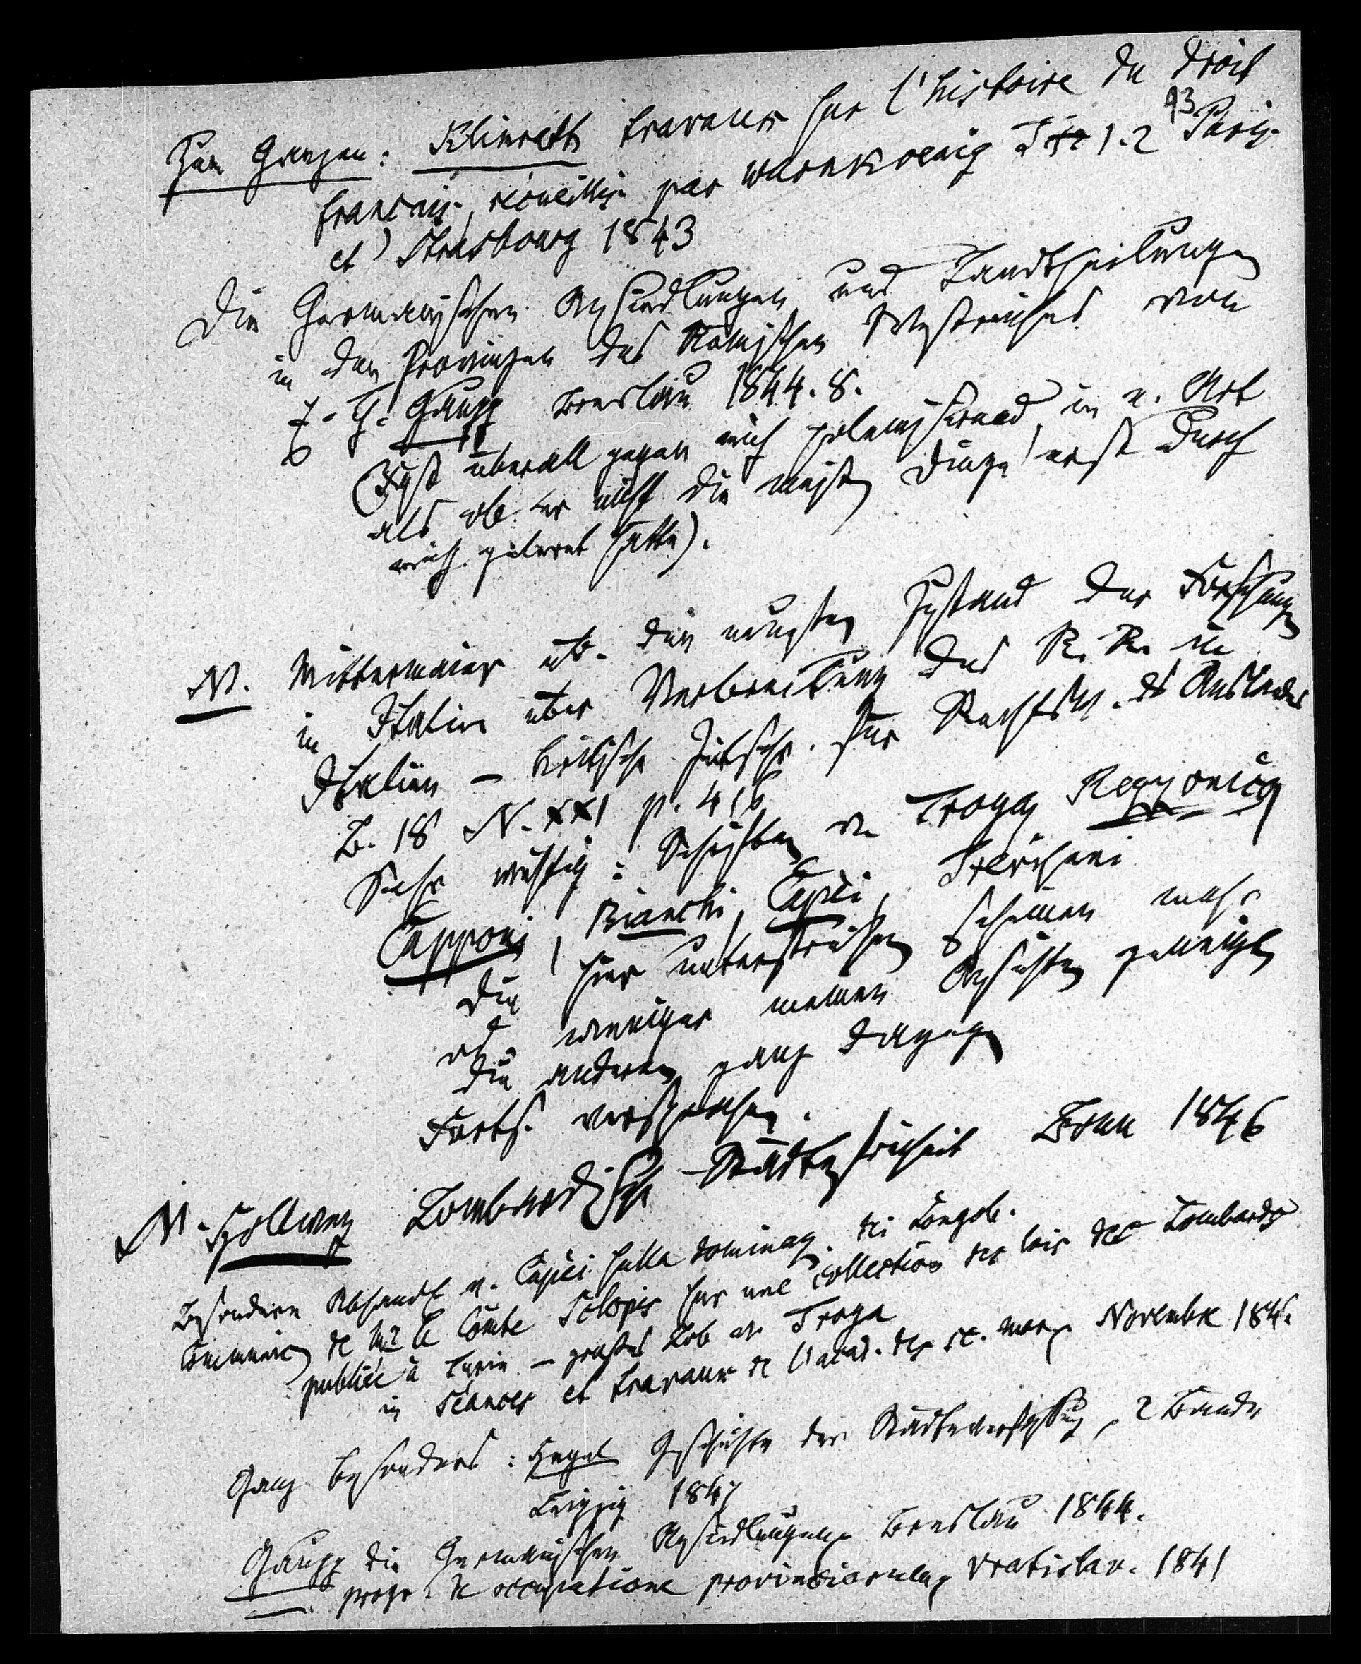 Zum Ganzen: Klimrath travaux sur l'histoire du droit
93
francais, recueillis par Warnkoenig T. 1. 2 Paris
et Strasbourg 1843
Die Germanischen Ansiedlungen und Landtheilungen
in den Provinzen des Römischen Westreiches von
E. Th. Gaupp Breslau 1844. 8.
(Fast überall gegen mich polemisirend, in e. Art
als ob er nicht die meisten Dinge erst durch
mich gelernt hätte).
N. Mittermaier üb. den neusten Zustand der Forschungen
in Italien über Verbreitung des R. R. in
Italien – kritische Zeitschr. für Rechtsw. ds Auslandes
B. 18 N. XXI p. 416
Sehr wichtig: Schriften v. Troya, Rezzonico
Capponi, Bianchi, Capei,
Die hier unterstrichen scheinen mehr
od. weniger meinen Ansichten geneigt
die anderen ganz dagegen
Forts. versprochen.
N. Hollweg Lombardische Städtefreiheit Bonn 1846
Besondere Abhandl. v. Capei sulla dominaz. dei Longob.
Communic. de Mr le Comte Sclopis sur une collection des lois des Lombards
publiée à Turin – großes Lob v. Troya
in Séances et travaux de l'acad. des sc. mor. Novembre 1846.
Ganz besonders: Hegel Geschichte der Städteverfassung, 2 Bände
Leipzig 1847
Gaupp die Germanischen Ansiedlungen Breslau 1844.
progr. de occupatione provinciarum, Vratislav. 1841